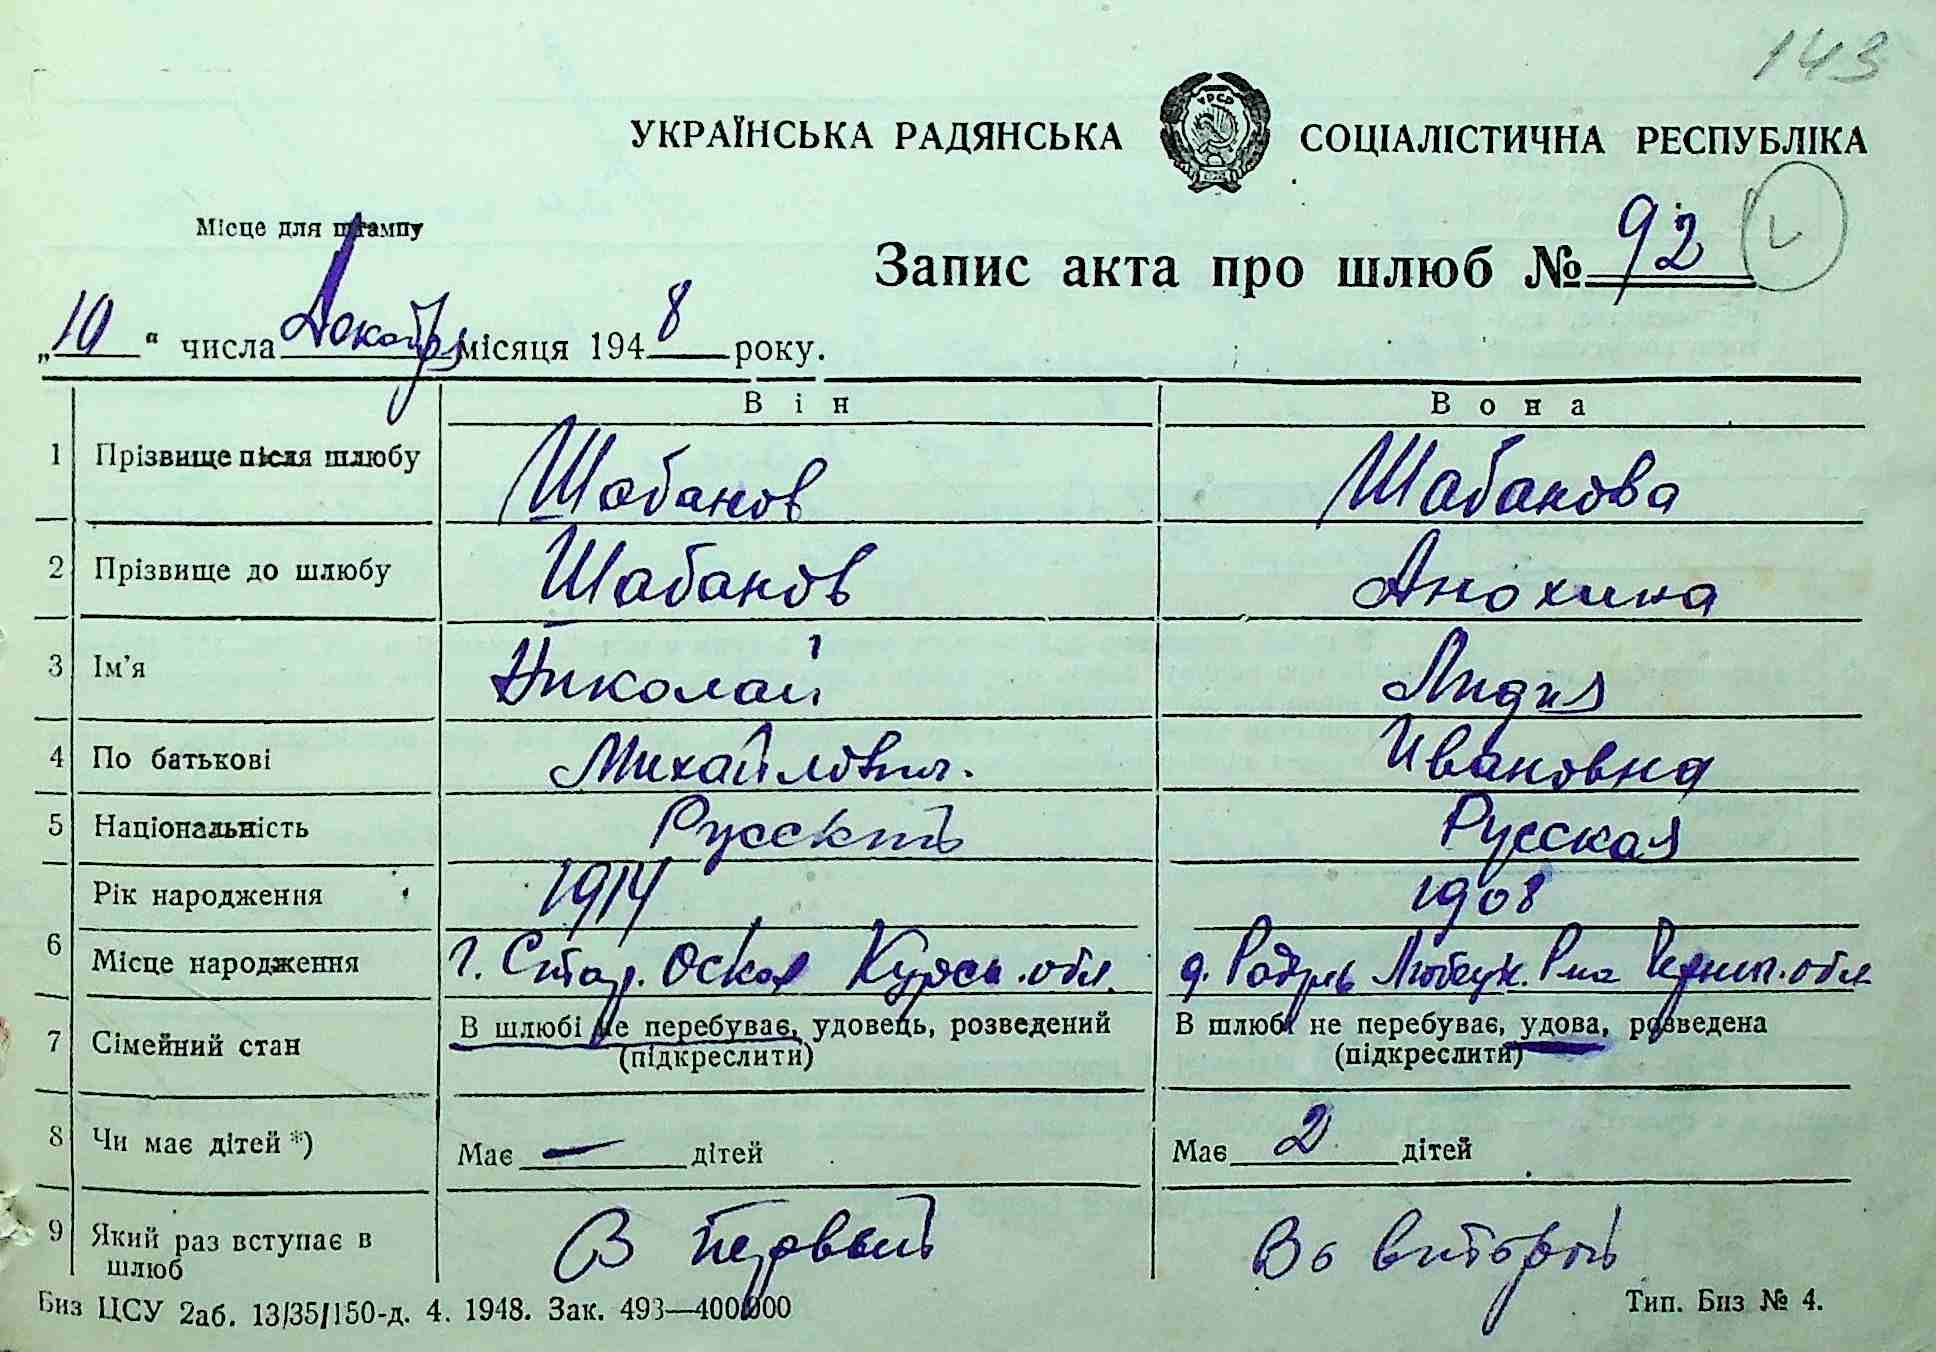 143
УКРАЇНСЬКА РАДЯНСЬКА СОЦІАЛІСТИЧНА РЕСПУБЛІКА
УРСР
Місце для штампу
Запис акта про шлюб № 92
„10" числа Декабря місяця 1948 року.
Він Вона
1 Прізвище після шлюбу Шабанов Шабанова
2 Прізвище до шлюбу Шабанов Анохина
3 Ім'я Николай Лидия
4 По батькові Михайлович. Ивановна
5 Національність Русский Русская
Рік народження 1914 1908
6 Місце народження г. Стар. Оскол Курск. обл. д. Любецк. Р-на Черниг. обл
7 Сімейний стан В шлюбі не перебуває, удовець, розведений В шлюбі не перебуває, удова, розведена
(підкреслити) (підкреслити)
8 Чи має дітей *) Має — дітей Має 2 дітей
9 Який раз вступає в шлюб В первый Во второй
Биз ЦСУ 2аб. 13/35/150-д. 4. 1948. Зак. 493—400.000 Тип. Биз № 4.